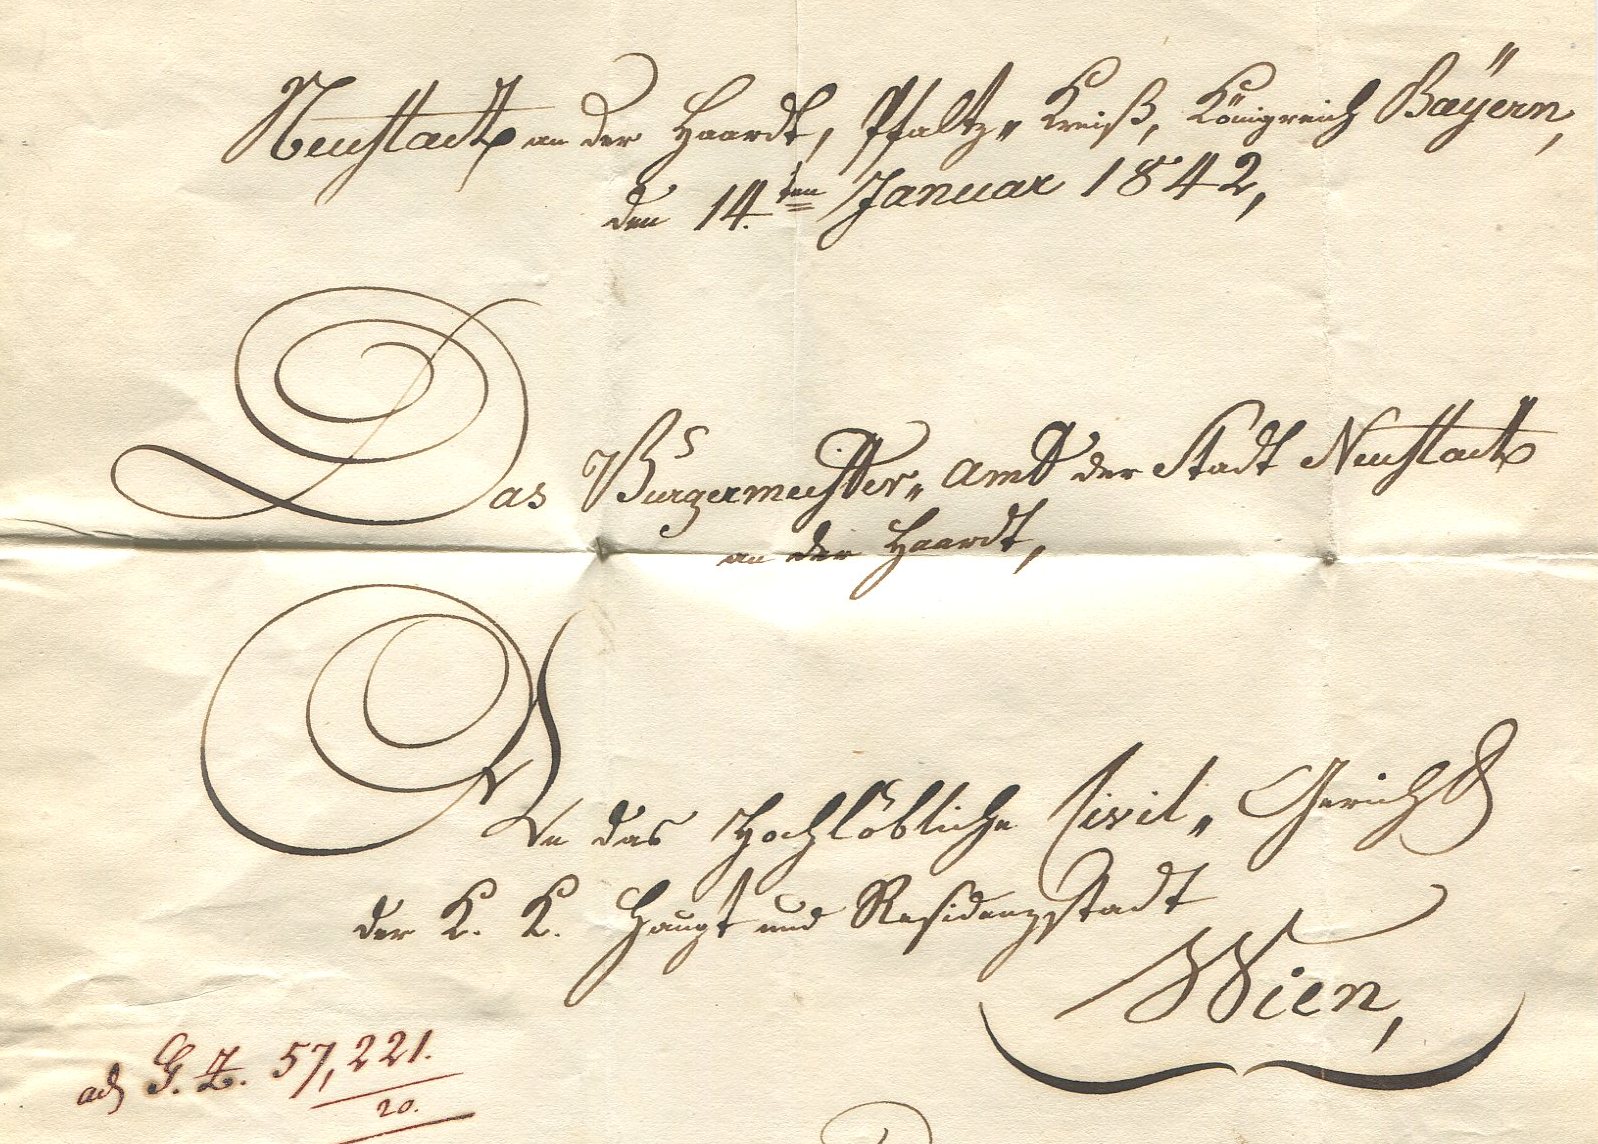 Neustadt an der Haardt, Pfaltz„ Kreiß, Königreich Bayern,
den 14.ten Januar 1842,
Das Bürgermeister„ Amt der Stadt Neustadt
an der Haardt,
An das Hochlöbliche Civil„ Gericht
der K. K. Haupt und Residenzstadt
Wien,
ad G. Z. 57,221.
20.